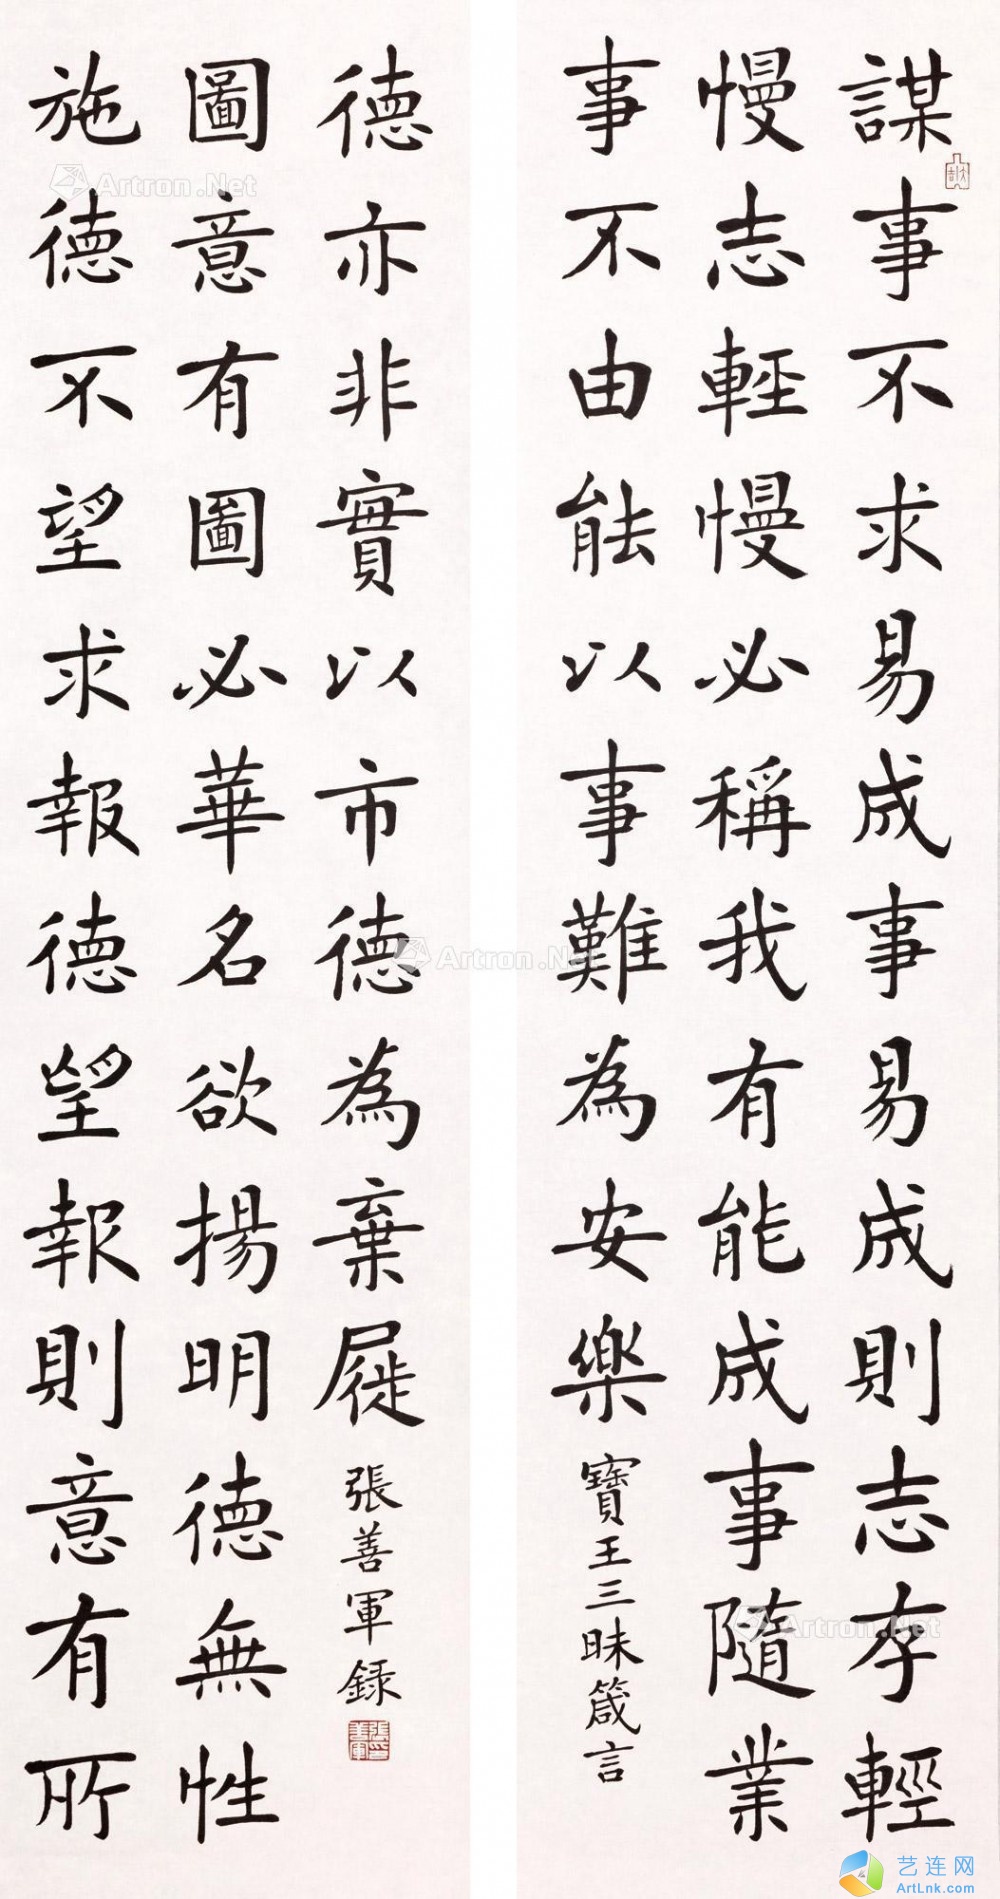 謀事不求易成事易成則志存輕
慢志輕慢必稱我有能成事隨業
事不由能以事難為安樂
寶王三昧箴言
施德不望求報德望報則意有所
圖意有圖必華名欲揚明德無性
德亦非實以市德為棄屣
張善軍錄
張善軍印
Artron.Net
Artron.Net
Artron.Net
艺连网
ArtLnk.com